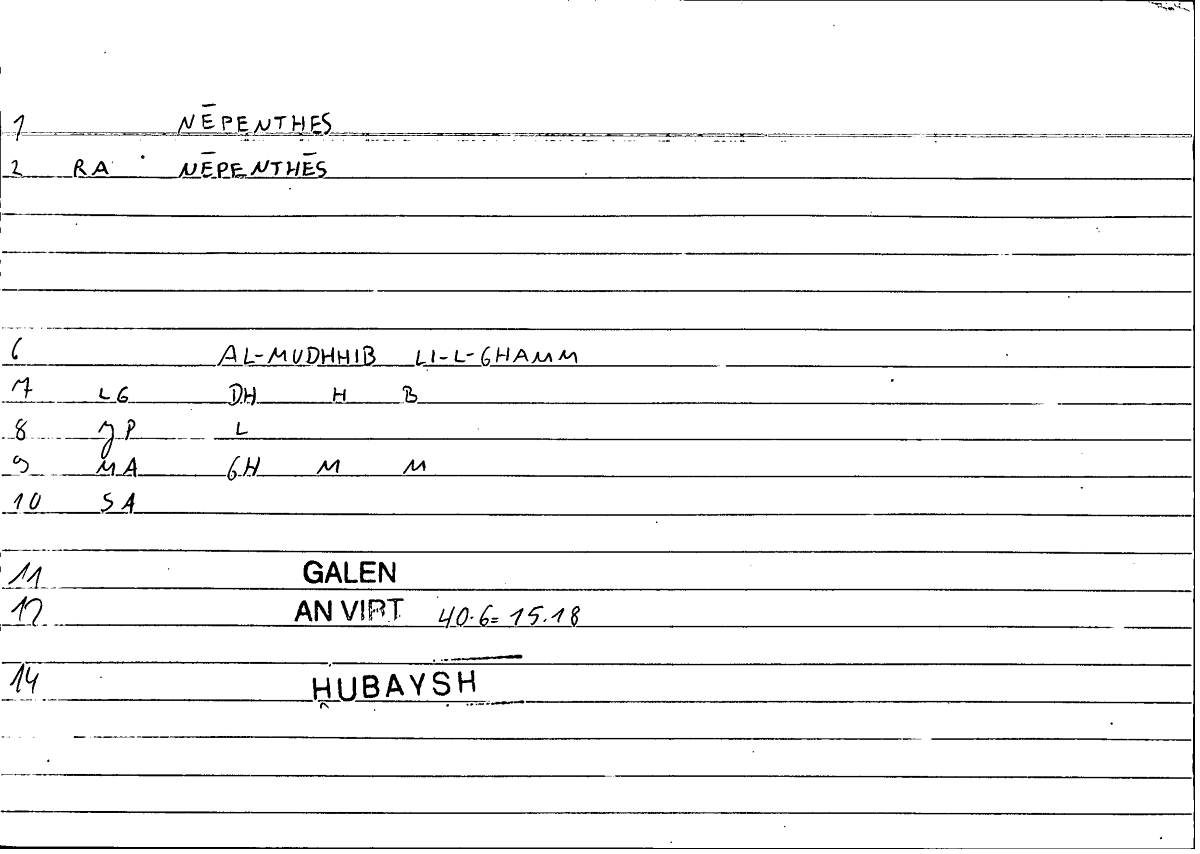 1 NĒPENTHES
2 RA NĒPENTHĒS
6 AL-MUDHHIB LI-L-GHAMM
7 LG DH H B
8 JP L
9 MA GH M M
10 SA
11 GALEN
12 AN VIRT 40.6= 15.18
14 ḤUBAYSH